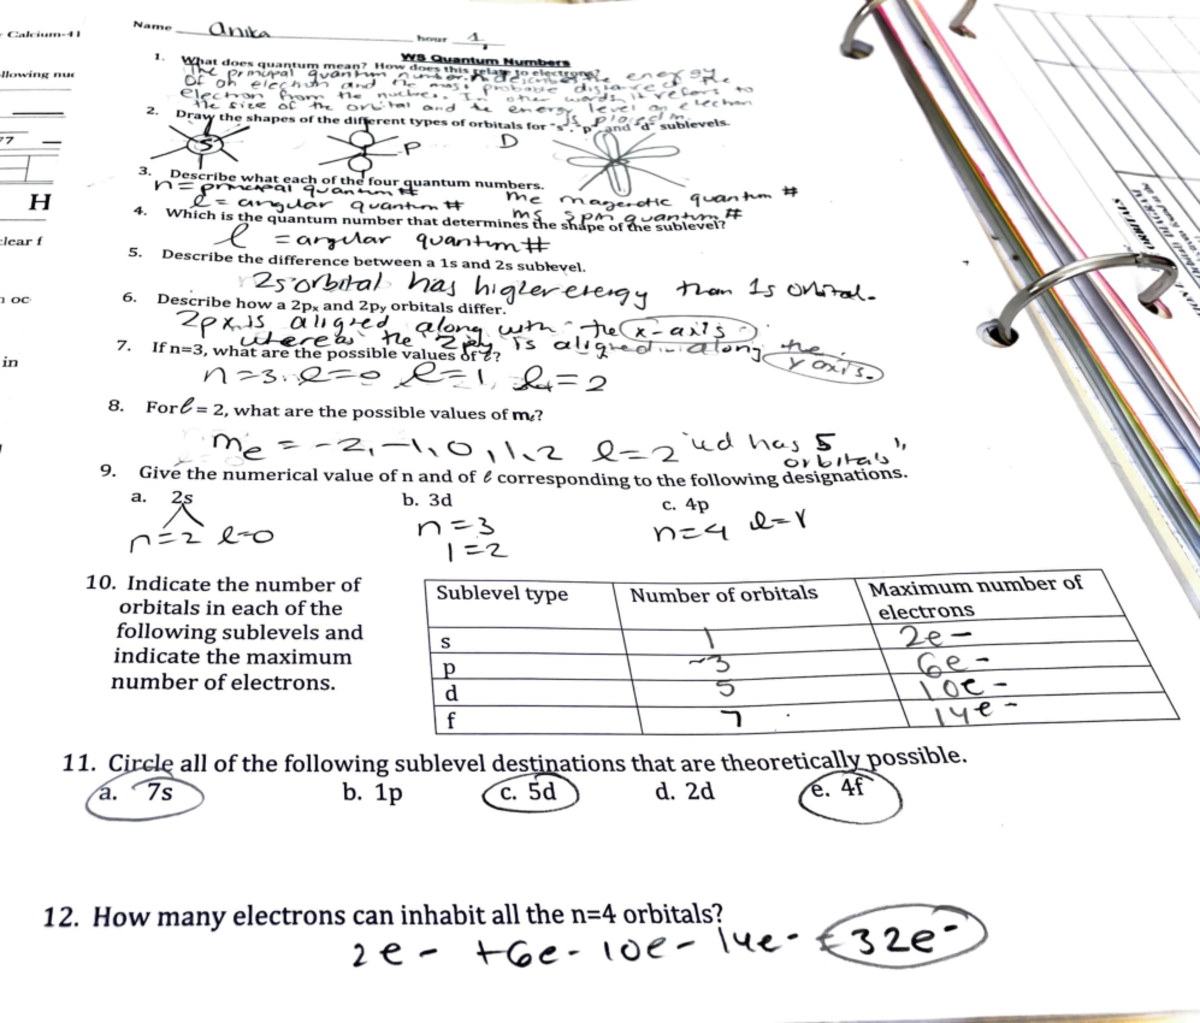 Calcium-41
Name Anika hour 1
WS Quantum Numbers
llowing nuc
1. What does quantum mean? How does this relate to electrons?
The principal quantum number.n describes the energy
of an electron and the most probable distance of the
electron from the nucleus. In other words, it refers to
the size of the orbital and the energy level an electron
is placed in.
2. Draw the shapes of the different types of orbitals for "s", "p" and "d" sublevels.
77
S P D
3. Describe what each of the four quantum numbers.
n=principal quantum # me magenetic quantum #
H
l= angular quantum # ms spin quantum #
4. Which is the quantum number that determines the shape of the sublevel?
clear f
l =angular quantum #
5. Describe the difference between a 1s and 2s sublevel.
2s orbital has higher energy than 1s orbital.
n oc
6. Describe how a 2px and 2py orbitals differ.
2px is aligned along with the x-axis
whereas the 2py is aligned along the
y axis.
7. If n=3, what are the possible values of ℓ?
in
n=3. l=0 l=1, l=2
8. For ℓ = 2, what are the possible values of mℓ?
me = -2,-1,0,1,2 l=2 "d has 5
orbitals",
9. Give the numerical value of n and of ℓ corresponding to the following designations.
a. 2s b. 3d c. 4p
n=2 l=0 n=3 n=4 l=1
l=2
10. Indicate the number of
orbitals in each of the
following sublevels and
indicate the maximum
number of electrons.
Sublevel type Number of orbitals Maximum number of
electrons
s 1 2e-
p ~3 6e-
d 5 10e-
f 7 14e-
11. Circle all of the following sublevel destinations that are theoretically possible.
a. 7s b. 1p c. 5d d. 2d e. 4f
12. How many electrons can inhabit all the n=4 orbitals?
2e- +6e- 10e- 14e- = 32e-